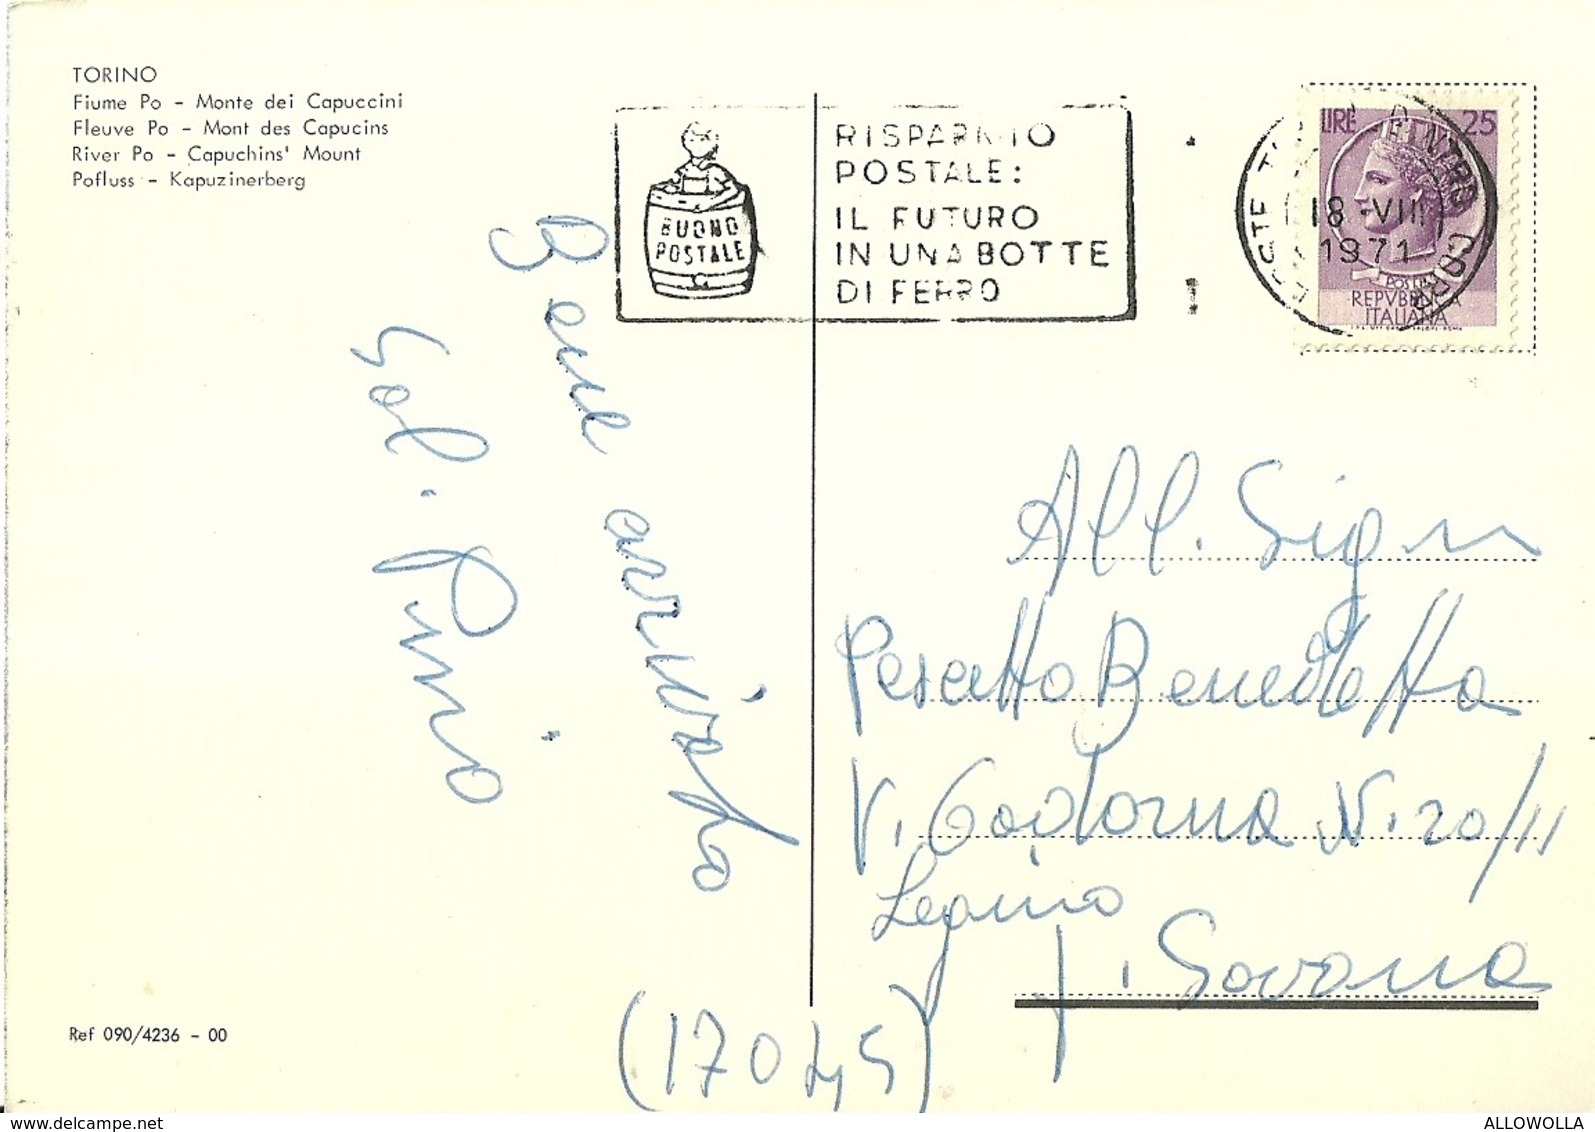 TORINO
Fiume Po - Monte dei Capuccini
Fleuve Po - Mont des Capucins
River Po - Capuchins' Mount
Pofluss - Kapuzinerberg
BUONO
POSTALE
RISPARMIO
POSTALE:
IL FUTURO
IN UNA BOTTE
DI FERRO
18-VIII
1971
LIRE 25
POSTE
REPVBBLICA
ITALIANA
Bene arrivato
Gol. Pinio
All. Sign
Pescetto Benedetta
V. Cadorna N. 20/11
Legino
p. Savona
(17045)
Ref 090/4236 - 00
ALLOWOLLA